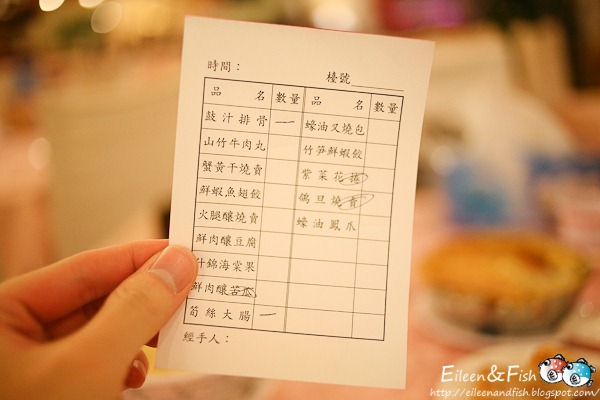 時間： 檯號
品名 數量 品名 數量
豉汁排骨 一 蠔油叉燒包
山竹牛肉丸 竹笋鮮蝦餃
蟹黃干燒賣 紫菜花捲
鮮蝦魚翅餃 鴿旦燒賣
火腿釀燒賣 蠔油鳳爪
鮮肉釀豆腐
什錦海棠果
鮮肉釀苦瓜
筍絲大腸 一
經手人：
Eileen&Fish
http://eileenandfish.blogspot.com/